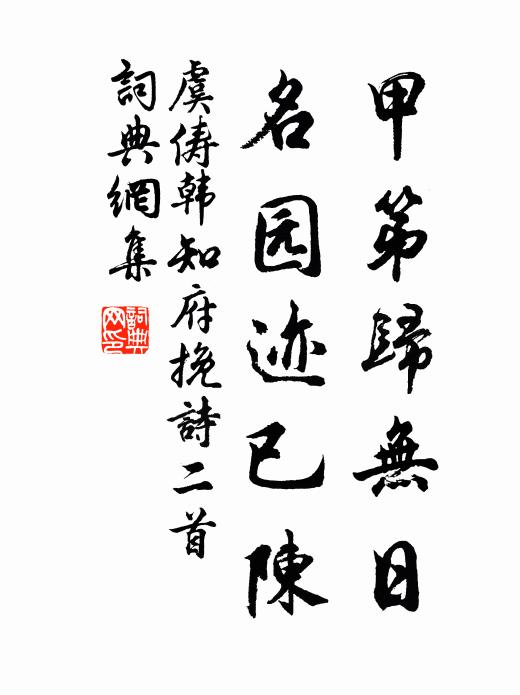 甲第歸無日
名园迹已陳
虞俦韩知府挽詩二首
詞典網集
詞典网印